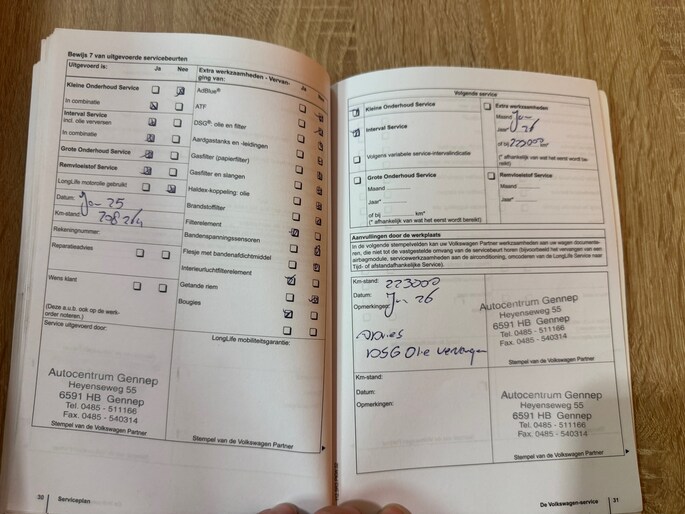 Bewijs 7 van uitgevoerde servicebeurten
Uitgevoerd is: Ja Nee
Kleine Onderhoud Service
In combinatie
Interval Service
incl. olie verversen
In combinatie
Grote Onderhoud Service
Remvloeistof Service
LongLife motorolie gebruikt
Datum: 25
Km-stand:
Rekeningnummer:
Reparatieadvies
Wens klant
(Deze a.u.b. ook op de werk-
order noteren.)
Service uitgevoerd door:
Autocentrum Gennep
Heyenseweg 55
6591 HB Gennep
Tel. 0485 - 511166
Fax. 0485 - 540314
Stempel van de Volkswagen Partner
Extra werkzaamheden - Vervan-
ging van: Ja Nee
AdBlue®
ATF
DSG®: olie en filter
Aardgastanks en -leidingen
Gasfilter (papierfilter)
Gasfilter en slangen
Haldex-koppeling: olie
Brandstoffilter
Filterelement
Bandenspanningssensoren
Flesje met bandenafdichtmiddel
Interieurluchtfilterelement
Getande riem
Bougies
LongLife mobiliteitsgarantie:
Stempel van de Volkswagen Partner
30 Serviceplan
Volgende service
Kleine Onderhoud Service
Interval Service
Volgens variabele service-intervalindicatie
Extra werkzaamheden
Maand
Jaar* 26
of bij 223000 km*
(* afhankelijk van wat het eerst wordt be-
reikt)
Grote Onderhoud Service
Maand
Jaar*
of bij km*
(* afhankelijk van wat het eerst wordt bereikt)
Remvloeistof Service
Maand
Jaar
Aanvullingen door de werkplaats
In de volgende stempelvelden kan uw Volkswagen Partner werkzaamheden aan uw wagen documente-
ren, die niet tot de vastgestelde omvang van de servicebeurt horen (bijvoorbeeld het vervangen van een
airbagmodule, servicewerkzaamheden aan de airconditioning, omcoderen van de LongLife Service naar
Tijd- of afstandafhankelijke Service).
Km-stand: 223000
Datum: 26
Opmerkingen:
Advies
DSG Olie vervangen
Autocentrum Gennep
Heyenseweg 55
6591 HB Gennep
Tel. 0485 - 511166
Fax. 0485 - 540314
Stempel van de Volkswagen Partner
Km-stand:
Datum:
Opmerkingen:
Autocentrum Gennep
Heyenseweg 55
6591 HB Gennep
Tel. 0485 - 511166
Fax. 0485 - 540314
Stempel van de Volkswagen Partner
De Volkswagen-service 31